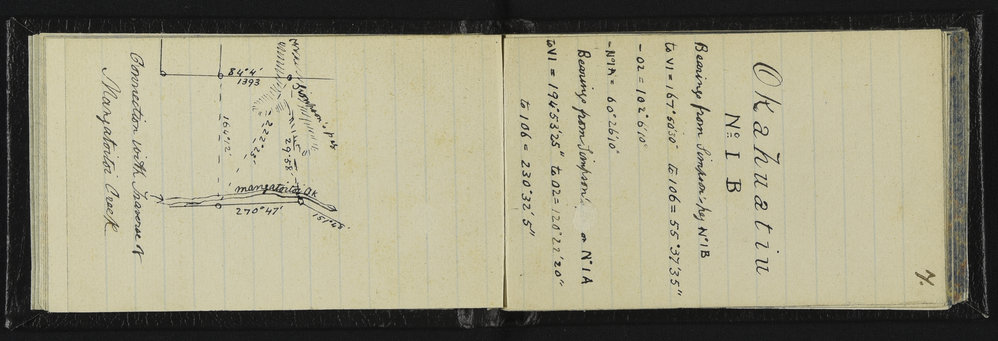 7.
Okahuatiu
No I B
Bearings from Simpson's peg No 1B
to VI = 167°50'30" to 106 = 55°37'35"
- 02 = 102°6'10"
- No 1A = 60°26'10"
Bearings from Simpson's on No 1A
to VI = 194°53'25" to 02 = 120°22'20"
to 106 = 230°32'5"
84°4'
1393
Simpson's peg
164°12'
222°
25
29.58
Mangatoitoi Ck
270°47'
Connection with Traverse of
Mangatoitoi Creek